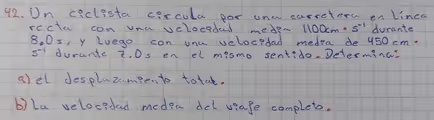 42. Un ciclista circula por una carretera en linea
recta con una velocidad media 1100cm · s⁻¹ durante
8,0s, y luego con una velocidad media de 450 cm ·
s⁻¹ durante 7.0s en el mismo sentido. Determina:
a) el desplazamiento total.
b) La velocidad media del viaje completo.